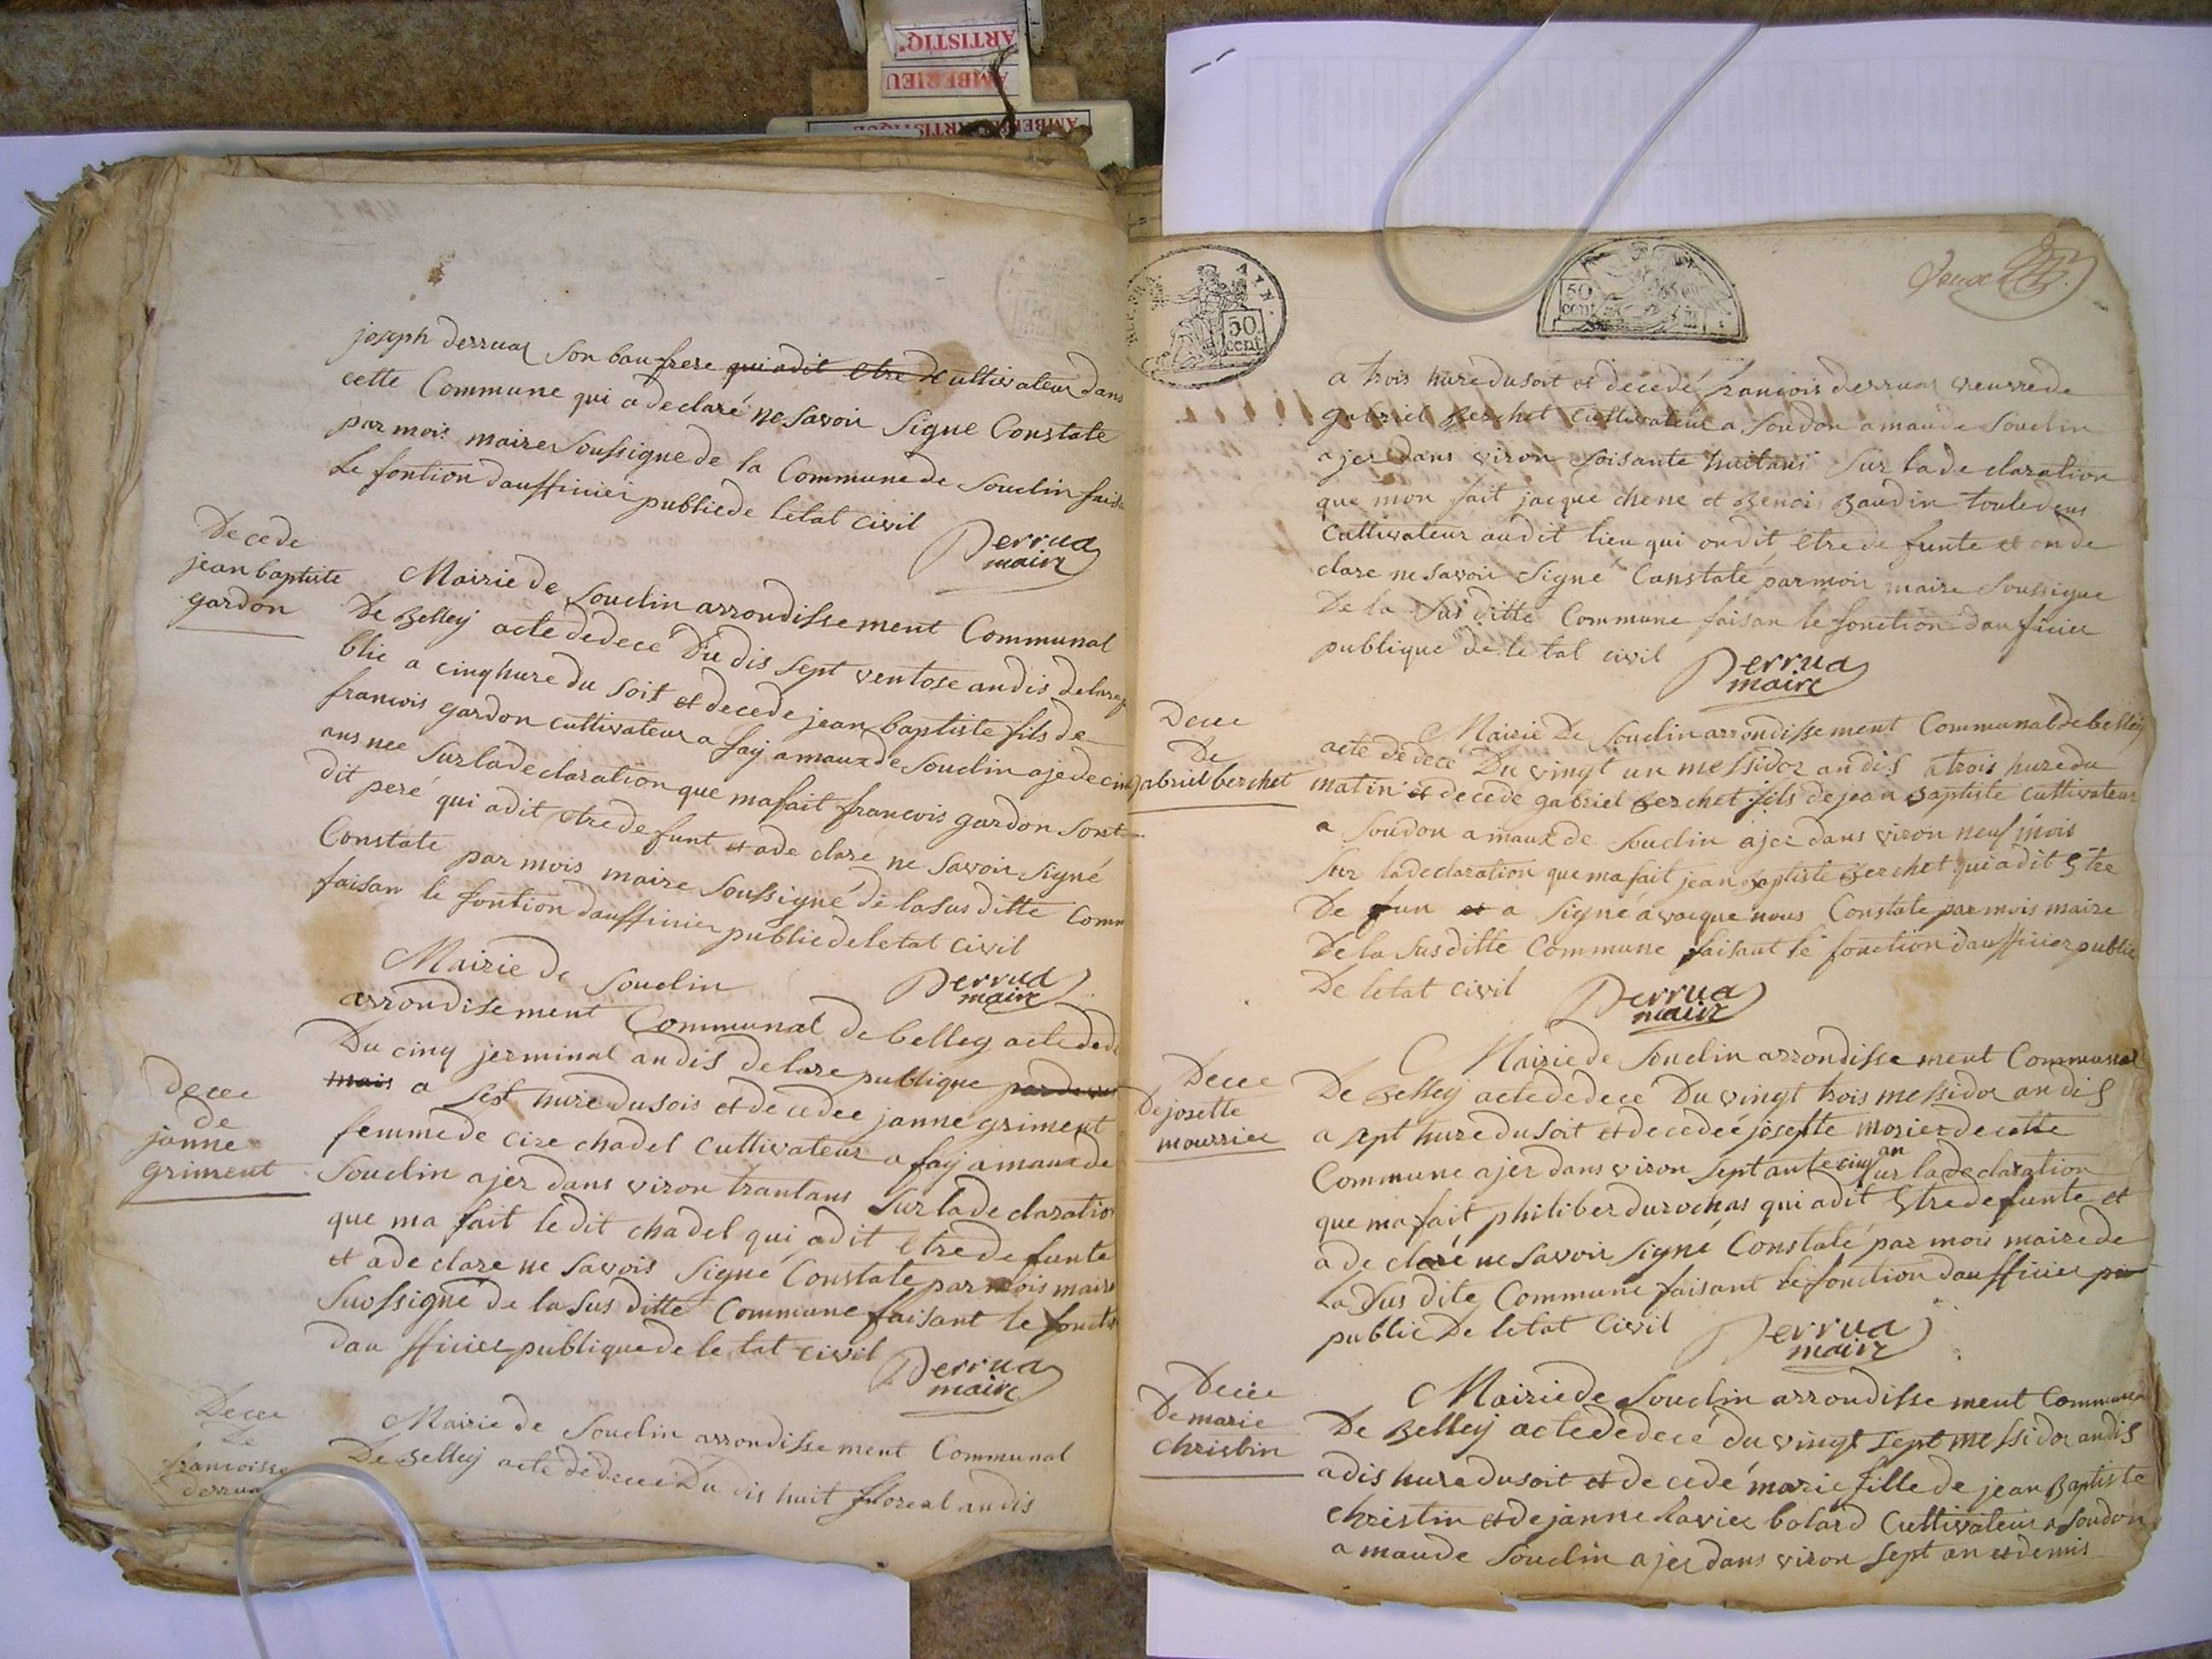 ARTISTIQ
AMBERIEU
joseph derruaz son baufrere qui a dit etre cultivateur dans
cette Commune qui a declaré ne savoir signe Constate
par mois maire soussigne de la Commune de souclin faisa
le fontion dauffinier public de letat civil
Perrua
maire
Decede
jean baptiste
gardon
Mairie de souclin arrondissement Communal
De Belley acte dedece Du dis sept ventose an dis de la rep
blic a cinq hure du soit et decede jean baptiste fils de
francois gardon cultivateur a fay amaux de souclin aje de cinq
ans nee sur la declaration que ma fait francois gardon sont
dit peré qui a dit etre defunt et a de clare ne savoir signé
Constate par mois maire soussigné de la sus ditte Comm
faisan le fontion dauffinier public de letat civil
Perrua
maire
Mairie de souclin
arrondissement Communal de belley acte dede
Du cinq jerminal an dis de la re publique
mais a sept hure du sois et de cedee janne griment
femme de cire chadel cultivateur a fay amaux de
souclin ajer dans viron trantans sur la de claratio
que ma fait le dit chadel qui a dit etre de funte
et a de clare ne savois signé Constate par mois maire
suossigné de la sus ditte Commune faisant le foncti
dau ffinier publique de le tat civil
Perrua
maire
decee
de
janne
griment
Decee
de
francoisse
derrua
Mairie de souclin arrondissement Communal
De Belley acte de decee Du dis huit floreal an dis
50
cent
50
cent
a trois hure du soit et decedé francois derruaz veuvre de
gabriel Berchet cultivateur a soudon amaude souclin
ajer dans viron soisante huitans sur la de claration
que mon fait jacque chene et Benoi Baudin toule deus
cultivateur audit lieu qui on dit etre de funte et on de
clare ne savoir signé Constaté par moir maire soussigne
De la sus ditte Commune faisan le fonction dau ficier
publique de le tat civil
Perrua
maire
Decee
De
gabriel berchet
Mairie De souclin arrondissement Communal de belley
acte de dece Du vingt un messidor an dis a trois hure du
matin et decede gabriel Berchet fils de jean Baptiste cultivateur
a soudon amaux de souclin ajer dans viron neuf mois
sur la declaration que ma fait jean Baptiste Berchet qui a dit Etre
De fun et a signé avaeque nous Constate par mois maire
De la sus ditte Commune faisant le fonction dauffinier public
De letat civil
Perrua
maire
Decee
De josette
mourrier
Mairie de souclin arrondisse ment Communal
De Belley acte de dece Du vingt trois messidor an dis
a sept hure du soit et de cedeé josephte morier de cette
Commune ajer dans viron septante cinq an sur la de claration
que ma fait philiber durochas qui a dit Etre de funte et
a de claré ne savoir signé Constaté par mois maire de
La sus dite Commune faisant le fonction dauffinier
public De letat Civil
Perrua
maire
Decée
De marie
christin
Mairie de souclin arrondisse ment Communal
De Belley acte de decé du vingt sept messidor an dis
a dis hure du soit et de cedé marie fille de jean Baptiste
christin et de janne Lavier bolard Cultivateur a soudon
amaude souclin ajer dans viron sept an et demis